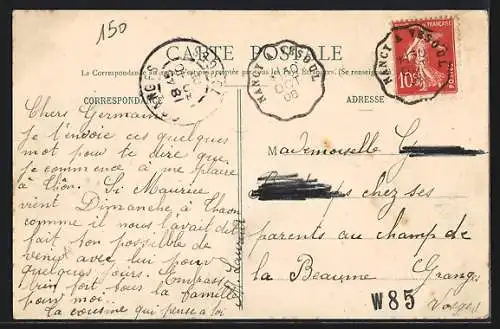 150
CARTE POSTALE
La Correspondance au
acceptée par tous les Pays Étrangers. (Se renseigner
CORRESPONDANCE
ADRESSE
NANCY A VESOUL
OCT
08
NANCY A VESOUL
10
POSTES
Chers Germaine
Je t'envoie ces quelques
mot pour te dire que
je commence à me plaire
à Thaon. Si Maurice
vient Dimanche à Thaon
comme il nous l'avait dit
fait ton possible de
venir avec lui pour
quelques jours.
bien fort tous la famille
pour moi..
ta cousine qui pense a toi
Mademoiselle
chez ses
parents au champ de
la Beaume Granges
Vosges
W85